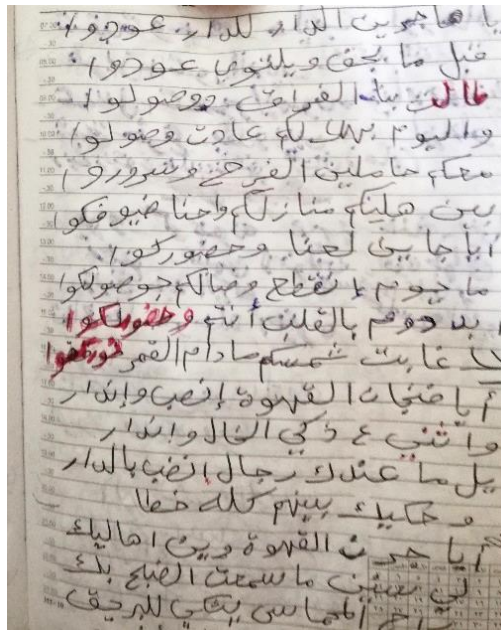 يا هاجرين الدار للدار عودوا
قبل ما يجف ويلتوي عودوا
طالت بنا الفراق ووصولوا
واليوم يهلا بكم عادت وصولوا
معكم حاملين الفرح وسرورو
بين هليكم منازلكم واحنا ضيوفكوا
ايا جايين لعنا وحضوركوا
ما يوم إنقطع وصالكم جوصولكوا
ابد دوم بالقلب أنتم وحضوركوا
غابت شمسكم مادام القمر
أيا فنجان القهوة إنصب وإندار
واثني ع ذكي الخال واندار
يل ما عندك رجال إنصب بالدار
و حكيك بينهم كله خطا
أيا جرن القهوة وين اهاليك
لي سنين ما سمعت الصبح
المحماس يبكي للبريق